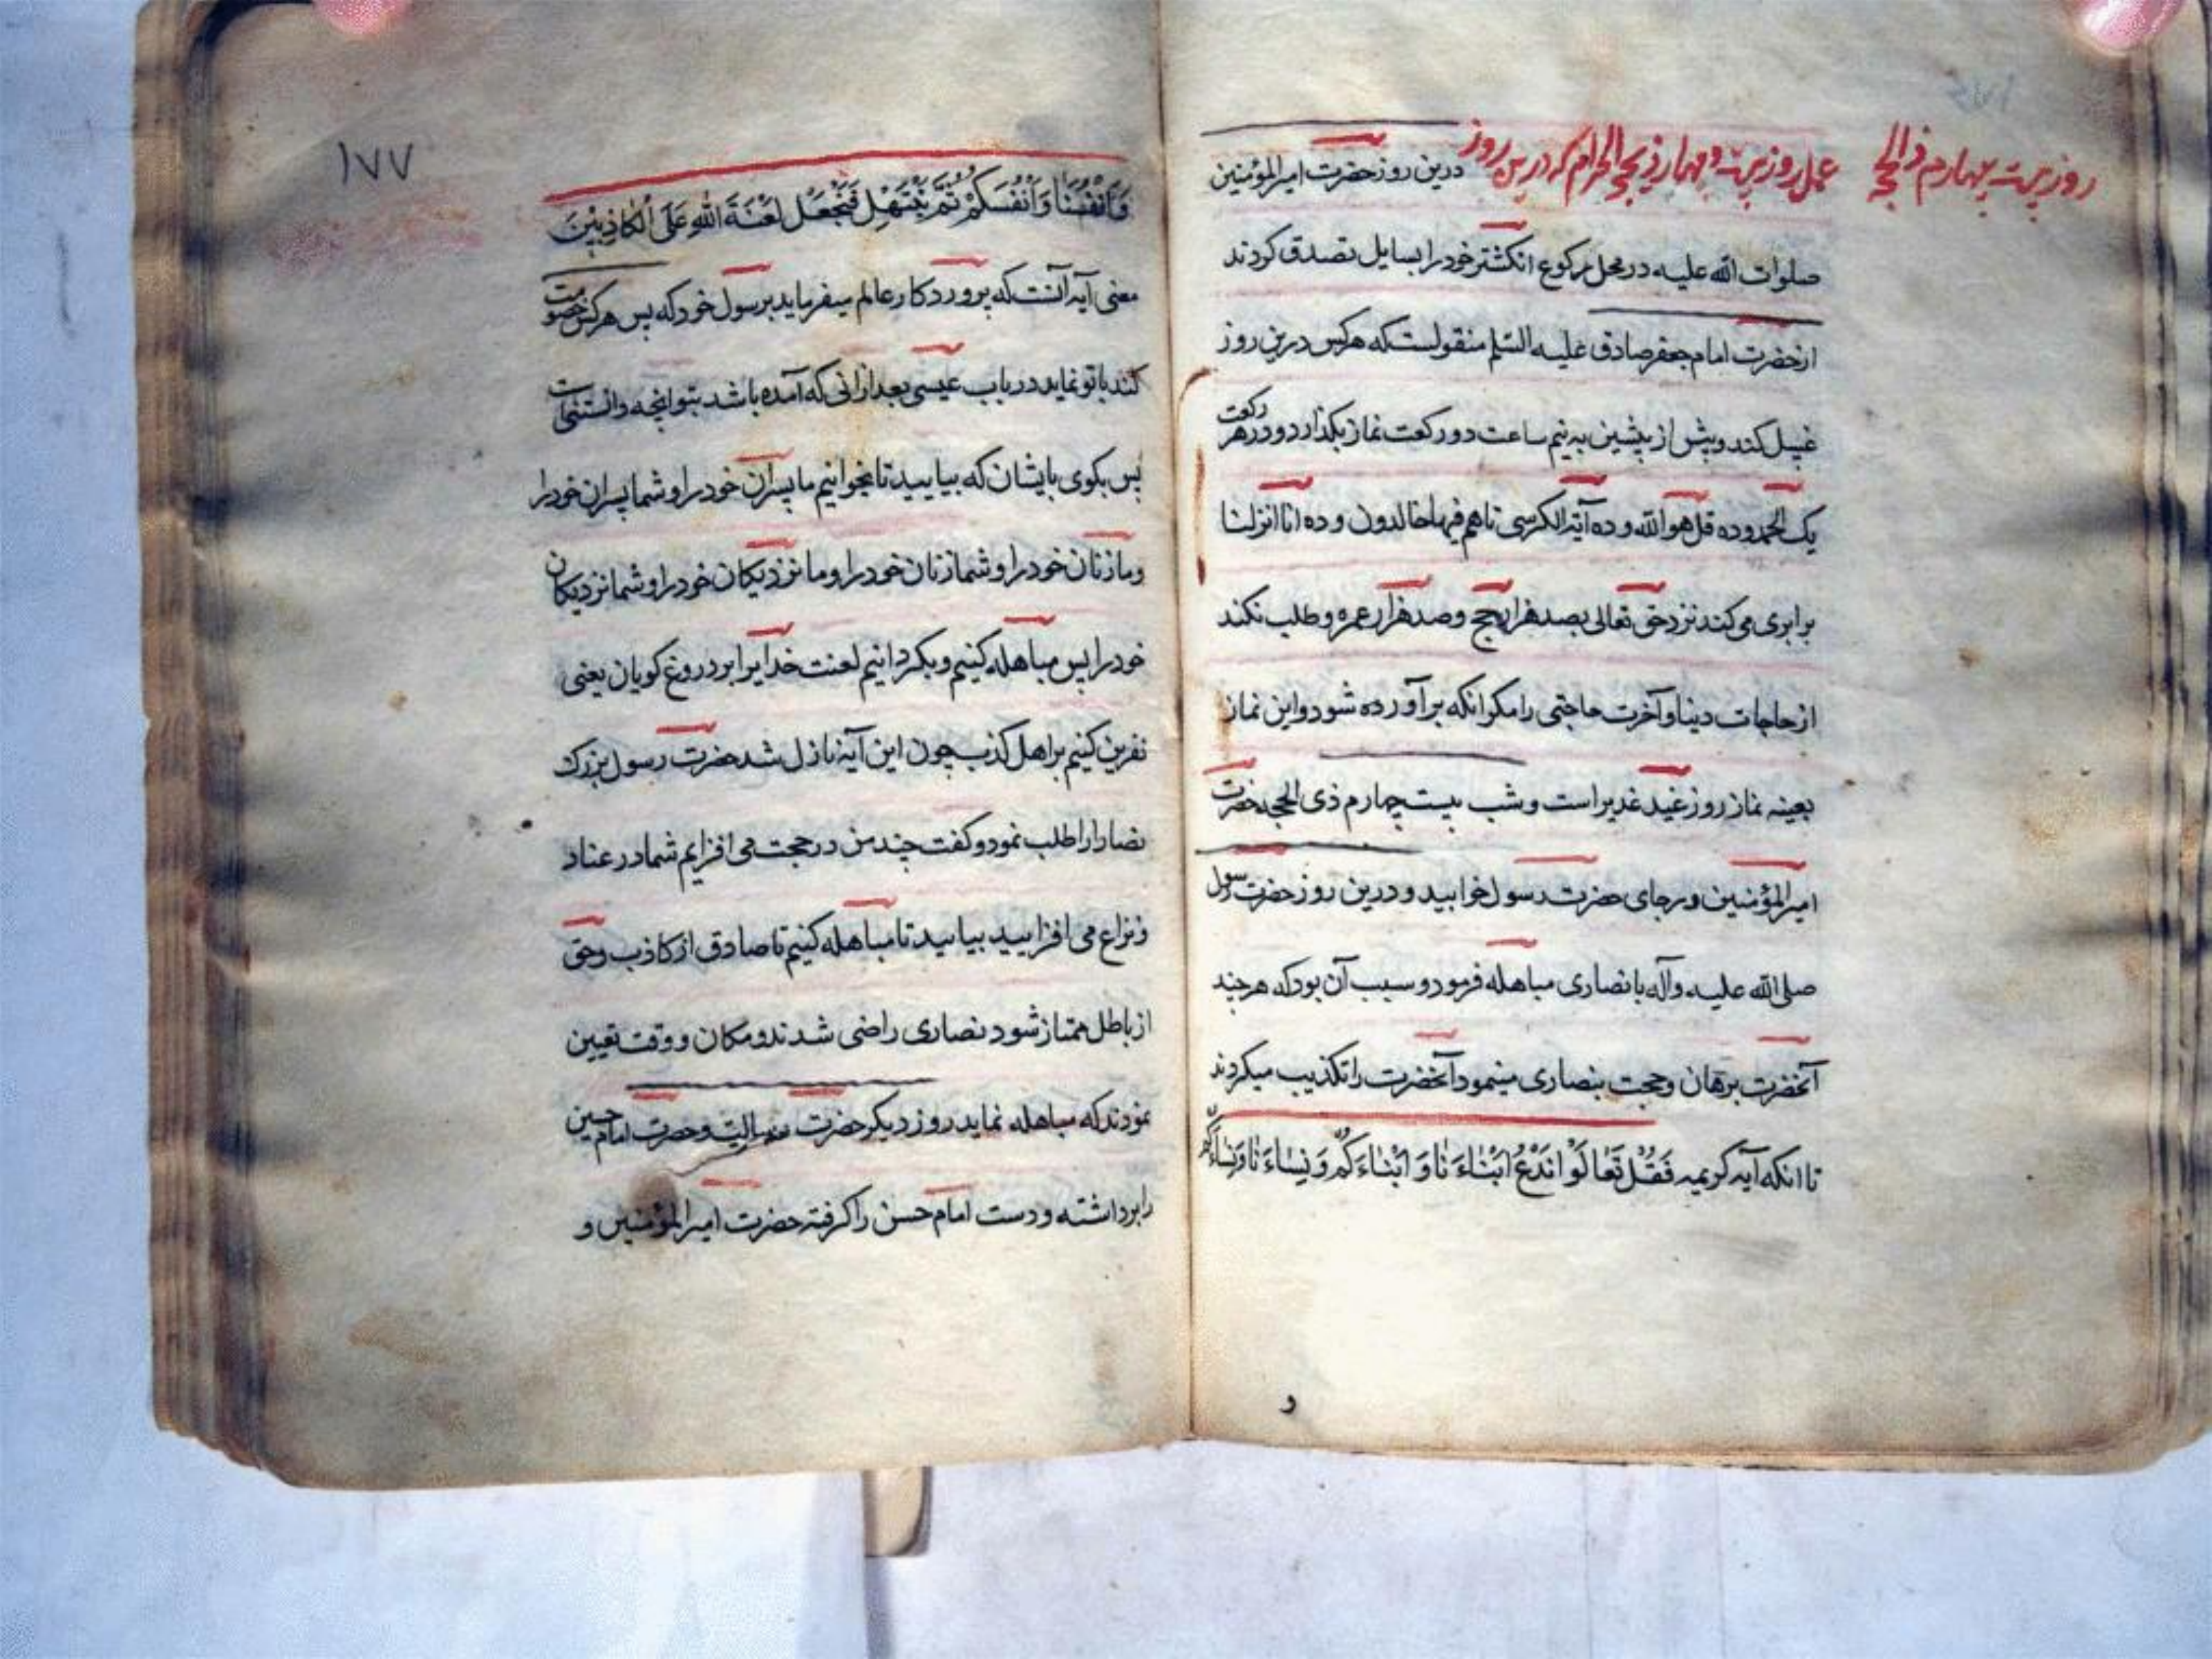 روز بیست چهارم ذالحجه
عمل روز بیست و چهار ذیحجه الحرام که درین روز درین روز حضرت امیرالمؤمنین
صلوات الله علیه در محل رکوع انکشتر خود را بسایل تصدق کردند
از حضرت امام جعفر صادق علیه السلم منقولست که هر کس درین روز
غسل کند و پیش از پیشین به نیم ساعت دو رکعت نماز بکذارد و در هر رکعت
یک الحمد و ده قل هو الله و ده آیة الکرسی تا هم فیها خالدون و ده انا انزلنا
برابری می کند نزد حق تعالی بصد هزار حج و صد هزار عمره و طلب نکند
از حاجات دینا و آخرت حاجتی را مکر انکه برآورده شود و این نماز
بعینه نماز روز عید غدیر است و شب بیست چهارم ذی الحجه حضرت
امیرالمؤمنین در جای حضرت رسول خوابید و درین روز حضرت رسول
صلی الله علیه وآله با نصاری مباهله فرمود و سبب آن بود که هر چند
آنحضرت برهان و حجت بنصاری مینمود آنحضرت را تکذیب میکردند
تا انکه آیه کریمه فَقُلْ تَعٰالَوْا نَدْعُ اَبْنٰاءَ نٰا وَ اَبْنٰاءَ کُمْ وَ نِسٰاءَ نٰا وَ نِسٰاءَکُمْ
و
۱۷۷
وَاَنْفُسَنٰا وَاَنْفُسَکُمْ ثُمَّ نَبْتَهِلْ فَنَجْعَلْ لَعْنَةَ اللهِ عَلَی الْکٰاذِبِیْنَ
معنی آیه آنست که پروردکار عالم میفرماید برسول خود که پس هر کس خصومت
کند با تو نماید در باب عیسی بعد ازانی که آمده باشد بتو انچه دانستنی است
پس بکوی بایشان که بیایید تا بخوانیم ما پسران خود را و شما پسران خود را
و ما زنان خود را و شما زنان خود را و ما نزدیکان خود را و شما نزدیکان
خود را پس مباهله کنیم و بکردانیم لعنت خدایرا بر دروغ کویان یعنی
نفرین کنیم بر اهل کذب چون این آیه نازل شد حضرت رسول بزرک
نصارا را طلب نمود و کفت چند من در حجت می افزایم شما در عناد
و نزاع می افزایید بیایید تا مباهله کنیم تا صادق از کاذب و حق
از باطل ممتاز شود نصاری راضی شدند و مکان و وقت تعیین
نمودند که مباهله نماید روز دیکر حضرت و حضرت امام حسین
را برداشته و دست امام حسن را کرفته حضرت امیرالمؤمنین و